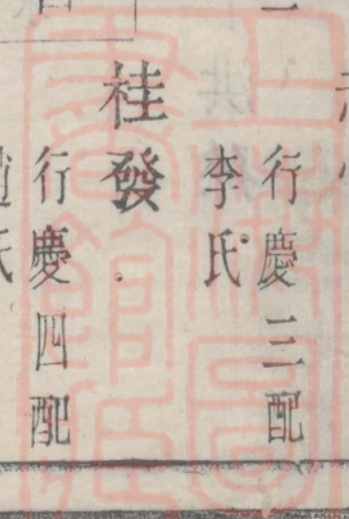 行慶三配
李氏
桂發
行慶四配
氏